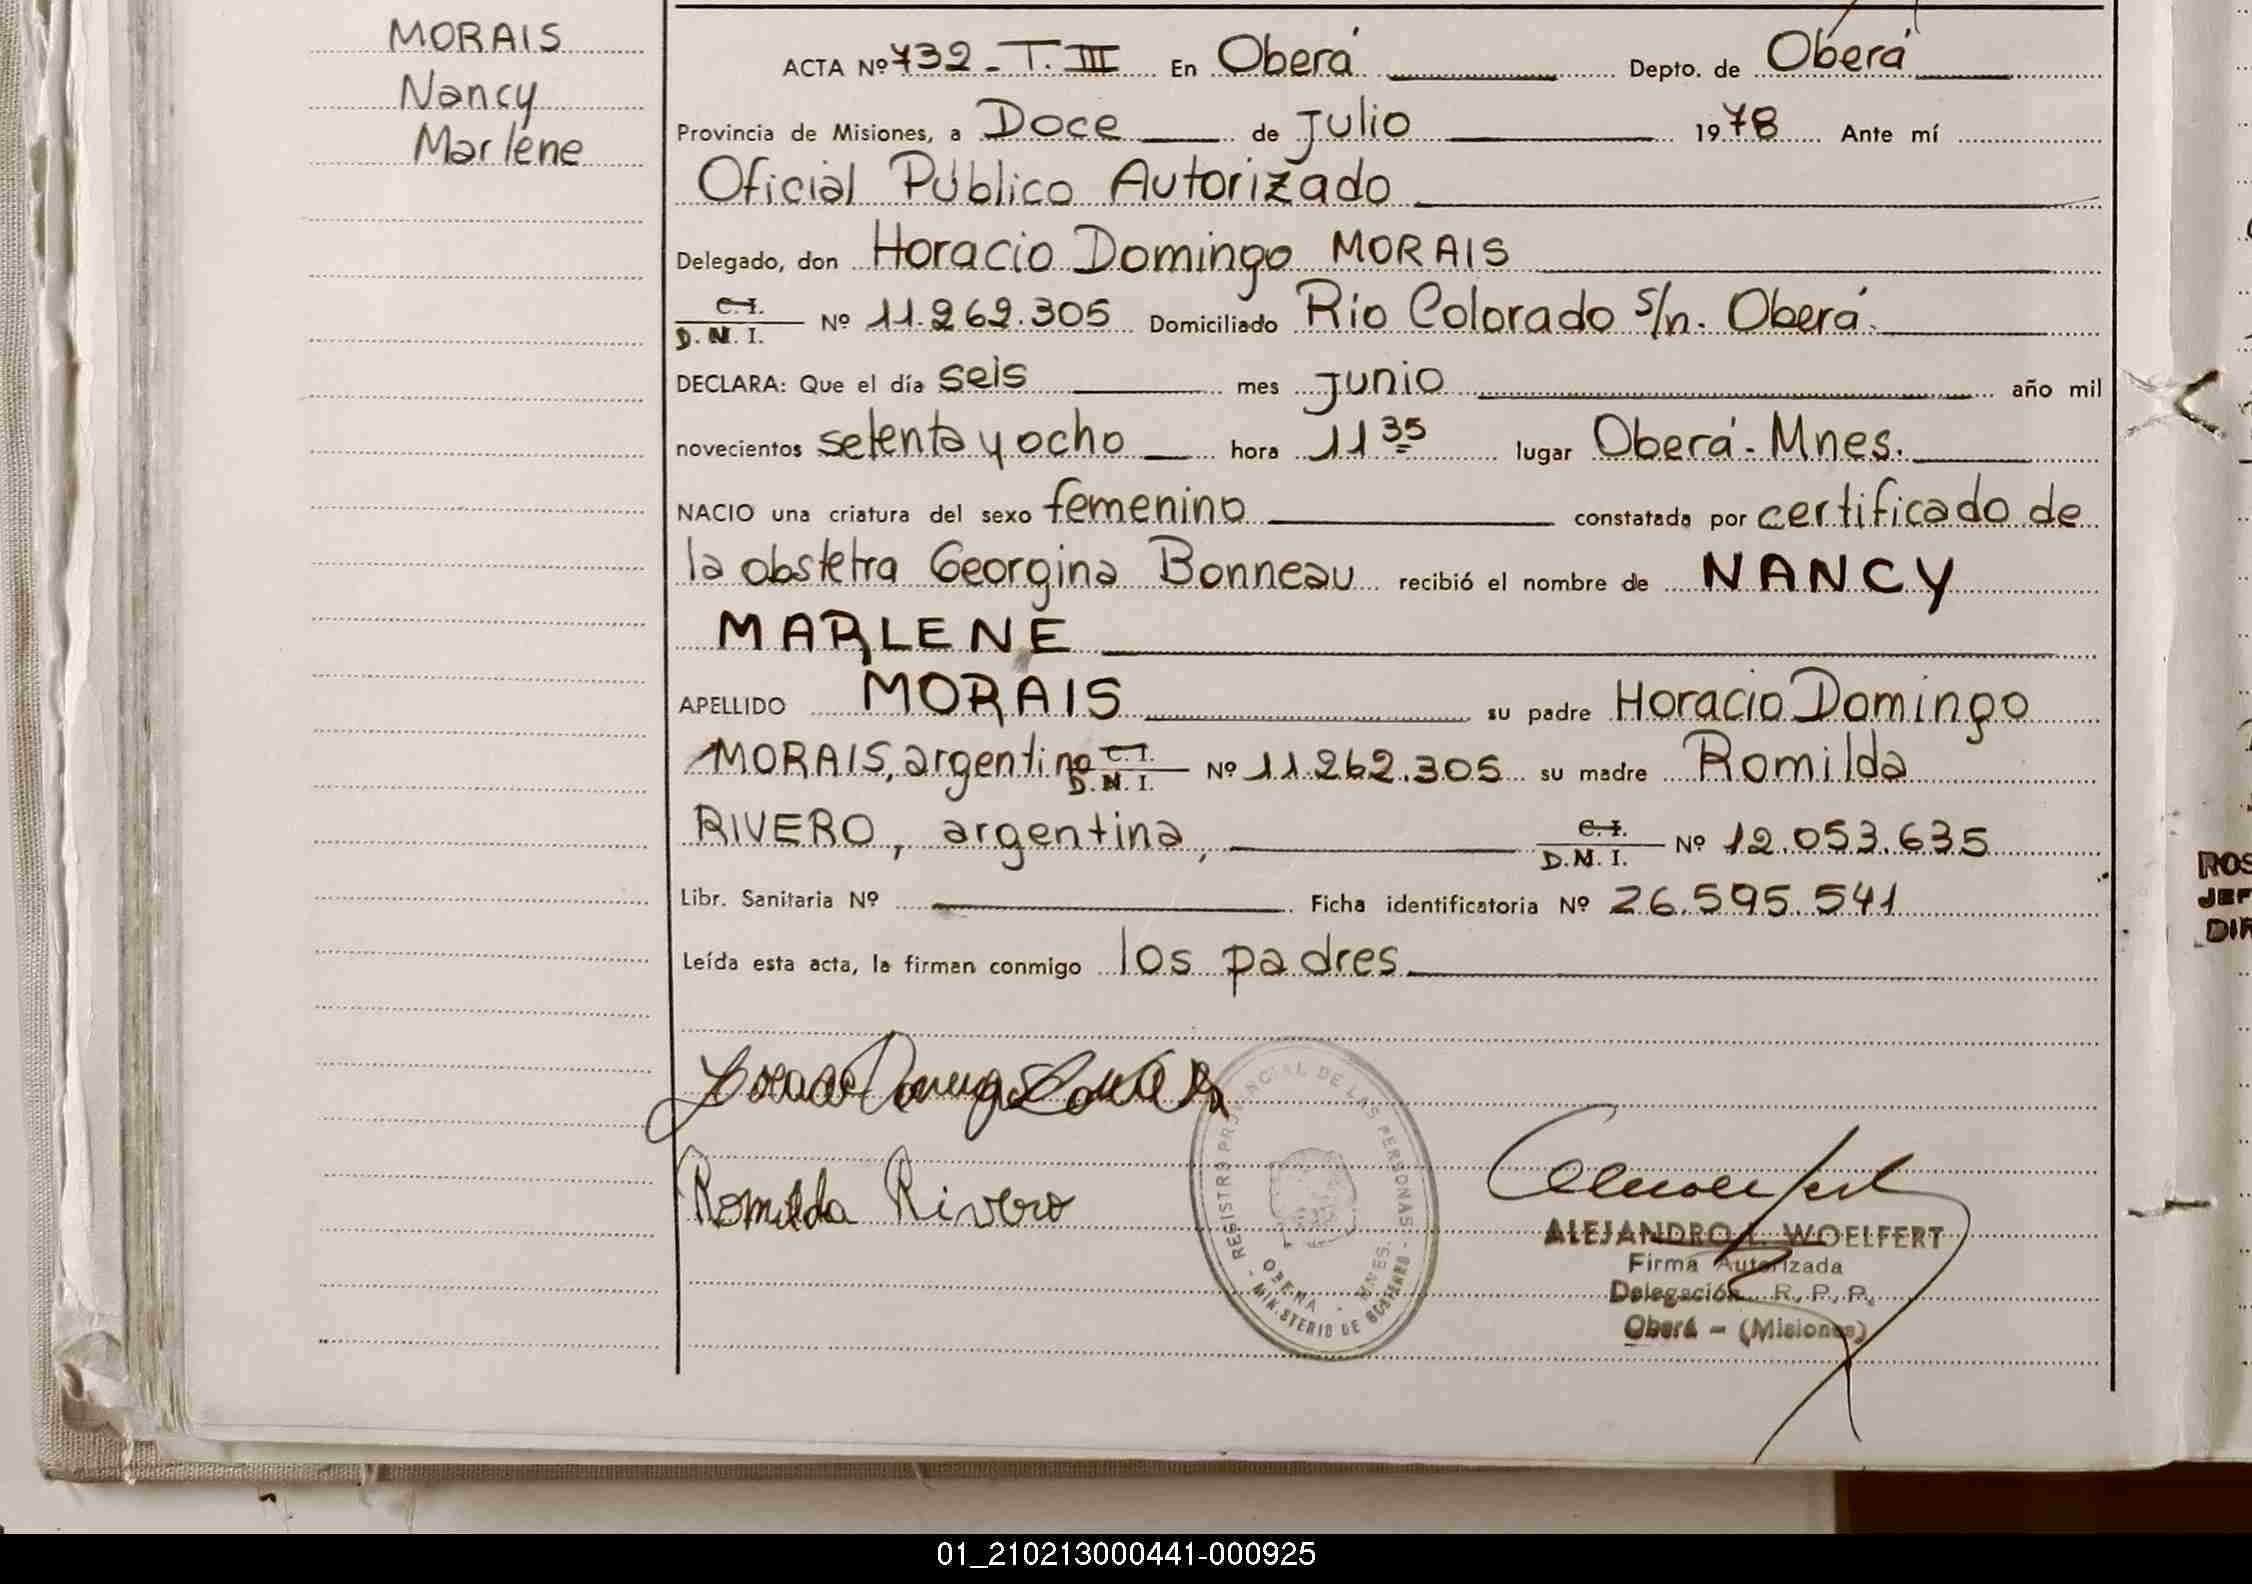 MORAIS
Nancy
Marlene
ACTA Nº 732 - T. III En Oberá Depto. de Oberá
Provincia de Misiones, a Doce de Julio 1978 Ante mí
Oficial Público Autorizado
Delegado, don Horacio Domingo MORAIS
C. I.
D. N. I. Nº 11.262.305 Domiciliado Río Colorado s/n. Oberá.
DECLARA: Que el día seis mes junio año mil
novecientos setenta y ocho hora 11 35 lugar Oberá - Mnes.
NACIO una criatura del sexo femenino constatada por certificado de
la obstetra Georgina Bonneau recibió el nombre de NANCY
MARLENE
APELLIDO MORAIS su padre Horacio Domingo
MORAIS, argentino C. I. D. N. I. Nº 11.262.305 su madre Romilda
RIVERO, argentina, C. I. D. N. I. Nº 12.053.635
Libr. Sanitaria Nº Ficha identificatoria Nº 26.595.541
Leída esta acta, la firman conmigo los padres
Romilda Rivero
- REGISTRO PROVINCIAL DE LAS PERSONAS -
OBERA - MNES.
MINISTERIO DE GOBIERNO
ALEJANDRO L. WOELFERT
Firma Autorizada
Delegación R. P. P.
Oberá - (Misiones)
ROS
JEF
DIR
01_210213000441-000925